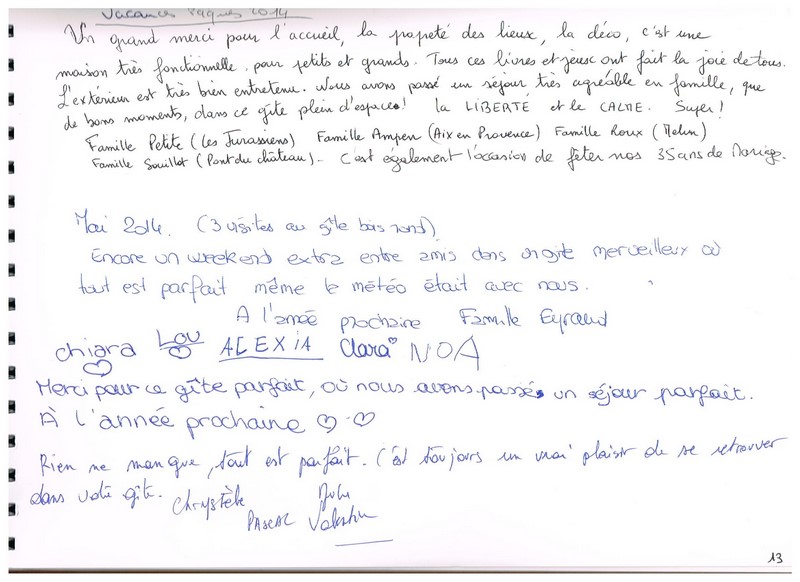 Vacances Pâques 2014
Un grand merci pour l'accueil, la propeté des lieux, la déco, c'est une
maison très fonctionnelle, pour petits et grands. Tous ces livres et jeux ont fait la joie de tous.
L'extérieur est très bien entretenu. Nous avons passé un séjour très agréable en famille, que
de bons moments, dans ce gîte plein d'espaces! la LIBERTE et le CALME. Super!
Famille Petite (les Jurassiens) Famille Ampen (Aix en Provence) Famille Roux (Melun)
Famille Souillot (Pont du château). C'est également l'occasion de fêter nos 35 ans de Mariage.
Mai 2014. (3 visites au gîte bois rond)
Encore un weekend extra entre amis dans un gite merveilleux où
tout est parfait même le météo était avec nous.
A l'année prochaine Famille Eyraud
chiara Lou ALEXIA Clara NOA
Merci pour ce gîte parfait, où nous avons passés un séjour parfait.
À l'année prochaine
Rien ne manque, tout est parfait. C'est toujours un vrai plaisir de se retrouver
dans votre gîte. Chrystèle
PASCAL Valentin
13